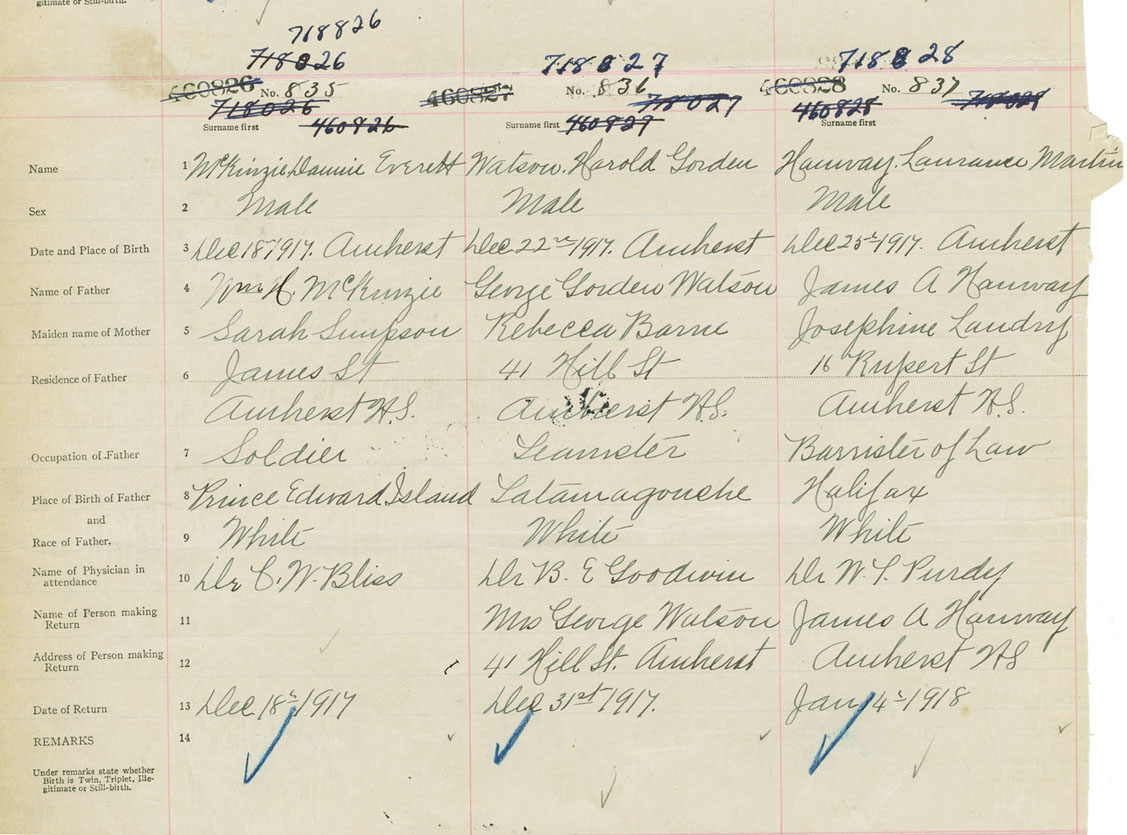 gitimate or Still-birth.
718826
718826 718827 718828
460826 No. 835 460827 No. 836 460828 No. 837
718026 718027 460828 718028
Surname first 460826 Surname first 460827 Surname first
Name 1 McKinzie, Dannie Everett Watson, Harold Gorden Hanway, Laurance Martin
Sex 2 Male Male Male
Date and Place of Birth 3 Dec 18 1917. Amherst Dec 22nd 1917. Amherst Dec 25th 1917. Amherst
Name of Father 4 Wm H. McKinzie George Gorden Watson James A Hanway
Maiden name of Mother 5 Sarah Simpson Rebecca Barne Josephine Landry
Residence of Father 6 James St 41 Hill St 16 Rupert St
Amherst N.S. Amherst N.S. Amherst N.S.
Occupation of Father 7 Soldier Teamster Barrister of Law
Place of Birth of Father 8 Prince Edward Island Tatamagouche Halifax
and
Race of Father. 9 White White White
Name of Physician in
attendance 10 Dr C. W. Bliss Dr B. E Goodwin Dr W. T. Purdy
Name of Person making
Return 11 Mrs George Watson James A Hanway
Address of Person making
Return 12 41 Hill St. Amherst Amherst NS
Date of Return 13 Dec 18th 1917 Dec 31st 1917. Jan 14th 1918
REMARKS 14
Under remarks state whether
Birth is Twin, Triplet, Ille-
gitimate or Still-birth.